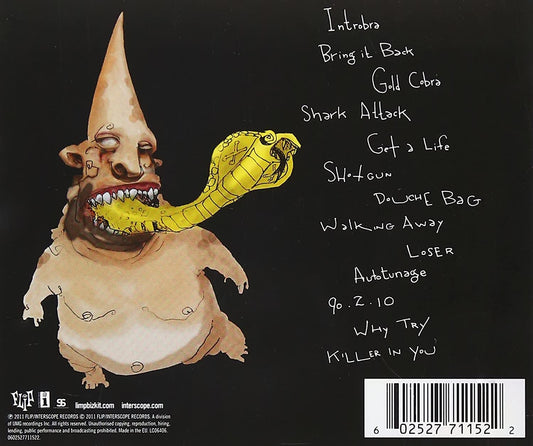 Introbra
Bring it Back
Gold Cobra
Shark Attack
Get a Life
Shotgun
Douche Bag
Walking Away
Loser
Autotunage
90.2.10
Why Try
Killer in You
FLiP i SS
limpbizkit.com interscope.com
℗ 2011 FLIP/INTERSCOPE RECORDS © 2011 FLIP/INTERSCOPE RECORDS. A division
of UMG recordings Inc. All rights reserved. Unauthorised copying, reproduction, hiring,
lending, public performance and broadcasting prohibited. Made in the EU. LC06406.
0602527711522
6 02527 71152 2